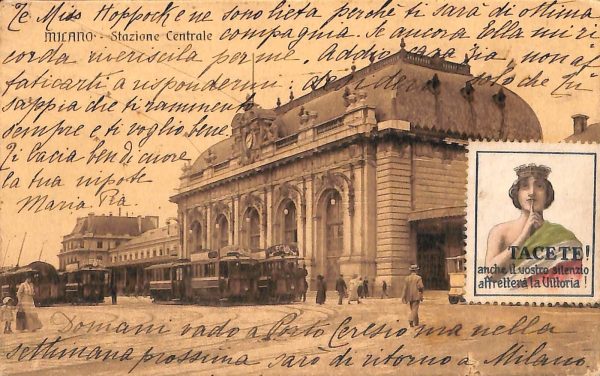 Ze Miss Hoppock e ne sono lieta perchè ti sarà di ottima
MILANO - Stazione Centrale
compagnia. Se ancora ella mi ri
corda riveriscila per me. Addio cara zia, non af
faticarti a rispondermi desidero solo che tu
sappia che ti rammento
sempre e ti voglio bene.
Ti bacia ben di cuore
la tua nipote
Maria Pia
TACETE!
anche il vostro silenzio
affretterà la Vittoria!
Domani vado a Porto Ceresio ma nella
settimana prossima sarò di ritorno a Milano.